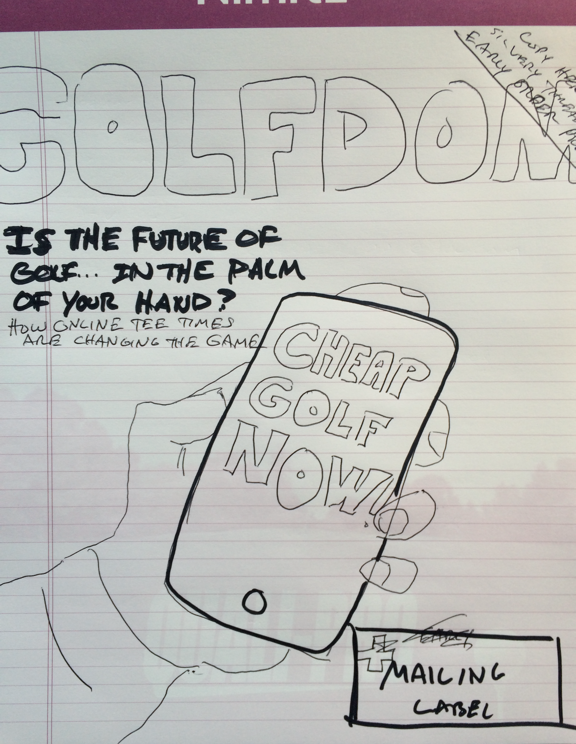 GOLFDOM
COPY HERE
EARLY ORDER
IS THE FUTURE OF
GOLF... IN THE PALM
OF YOUR HAND?
HOW ONLINE TEE TIMES
ARE CHANGING THE GAME
CHEAP
GOLF
NOW!
MAILING
LABEL